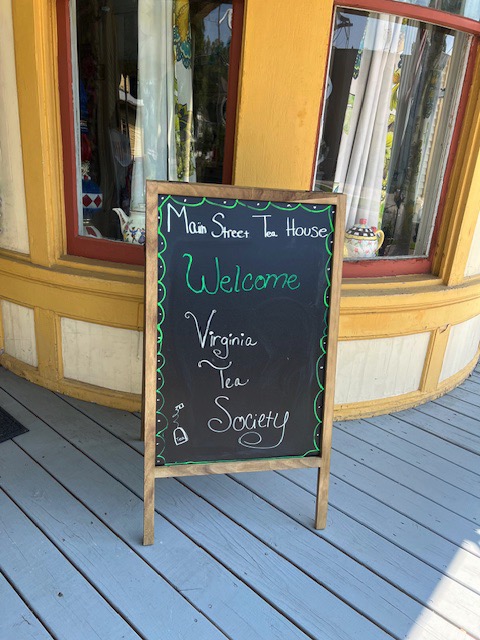 Main Street Tea House
Welcome
Virginia
Tea
Society